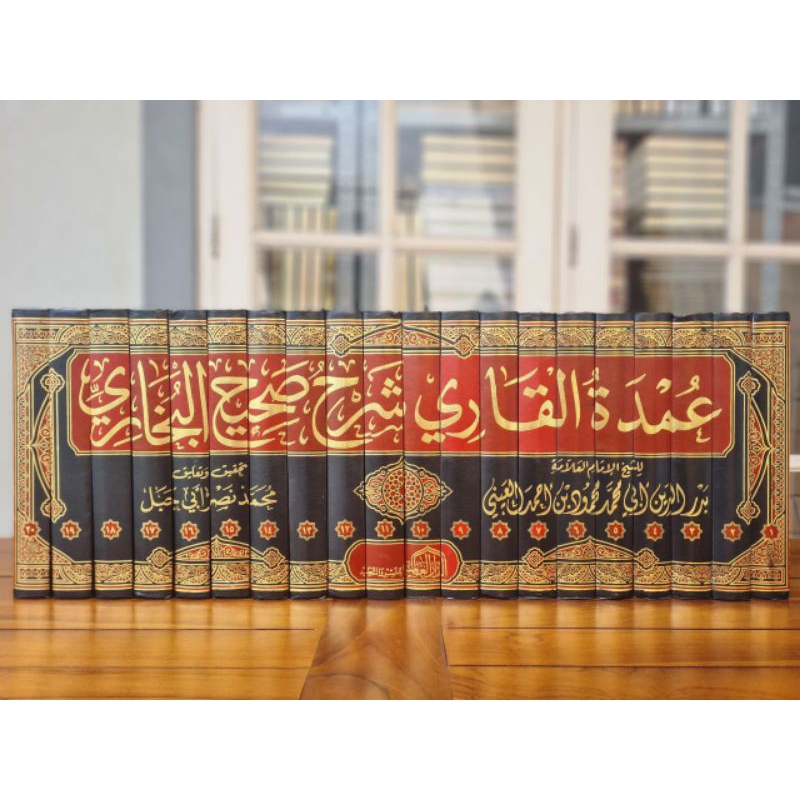 عُمْدَةُ القَارِي شَرْحُ صَحِيْحِ البُخَارِيِّ
للشيخ الإمام العلامة
بدر الدين أبي محمد محمود بن أحمد العيني
تحقيق وتعليق
محمد نصر أبي جبل
١ ٢ ٣ ٤ ٥ ٦ ٧ ٨ ٩ ١٠ ١١ ١٢ ١٣ ١٤ ١٥ ١٦ ١٧ ١٨ ١٩ ٢٠